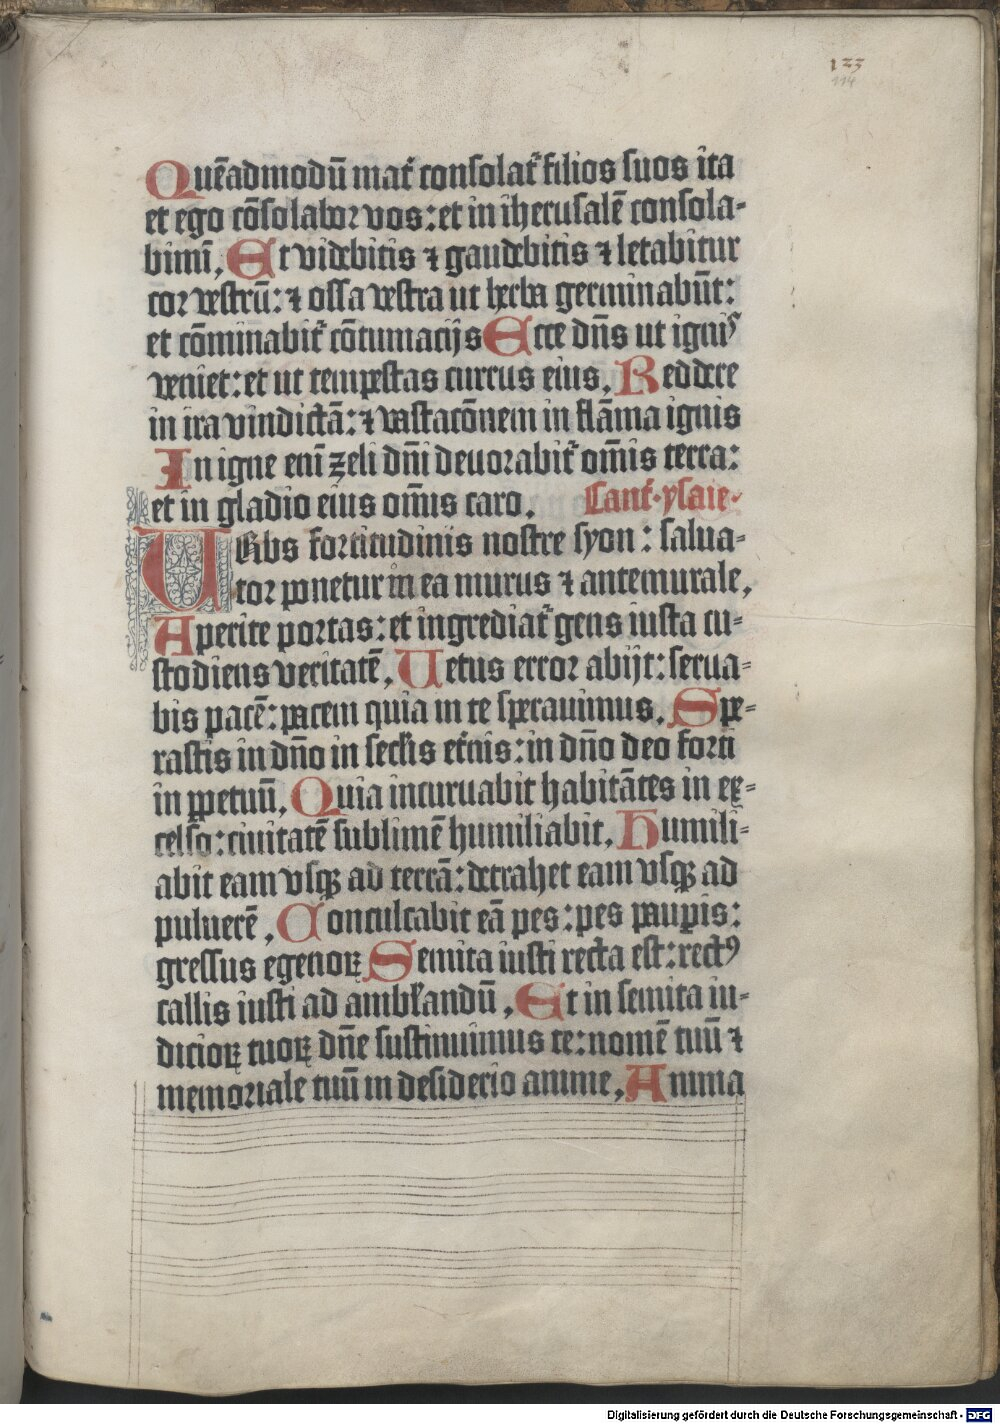 133
114
Quēadmodū mat᷑ consolat᷑ filios suos ita
et ego cōsolabor vos: et in iherusalē consola-
bimī, Et videbitis ⁊ gaudebitis ⁊ letabitur
cor vestrū: ⁊ ossa vestra ut herba germinabūt:
et cōminabit᷑ cōtumacijs Ecce dn̄s ut ignis
veniet: et ut tempestas currus eius, Reddere
in ira vindictā: ⁊ vastacōnem in flāma ignis
In igne enī zeli dn̄i devorabit᷑ om̄is terra:
et in gladio eius om̄is caro. Cant᷑. ysaie.
URbs fortitudinis nostre syon: salua-
tor ponetur in ea murus ⁊ antemurale,
Aperite portas: et ingrediat᷑ gens iusta cu-
stodiens veritatē, Uetus error abijt: serua-
bis pacē: pacem quia in te sperauimus, Spe-
rastis in dn̄o in sect̄is et̄nis: in dn̄o deo forti
in ꝑpetuū, Quia incuruabit habitātes in ex-
celso: ciuitatē sublimē humiliabit, Humili-
abit eam vsqꝫ ad terrā: detrahet eam vsqꝫ ad
puluerē, Conculcabit eā pes: pes pauꝑis:
gressus egenoꝝ Semita iusti recta est: rectꝰ
callis iusti ad ambl̄andū, Et in semita iu-
dicioꝝ tuoꝝ dn̄e sustinuimus te: nomē tuū ⁊
memoriale tuū in desiderio anime, Anima
Digitalisierung gefördert durch die Deutsche Forschungsgemeinschaft - DFG